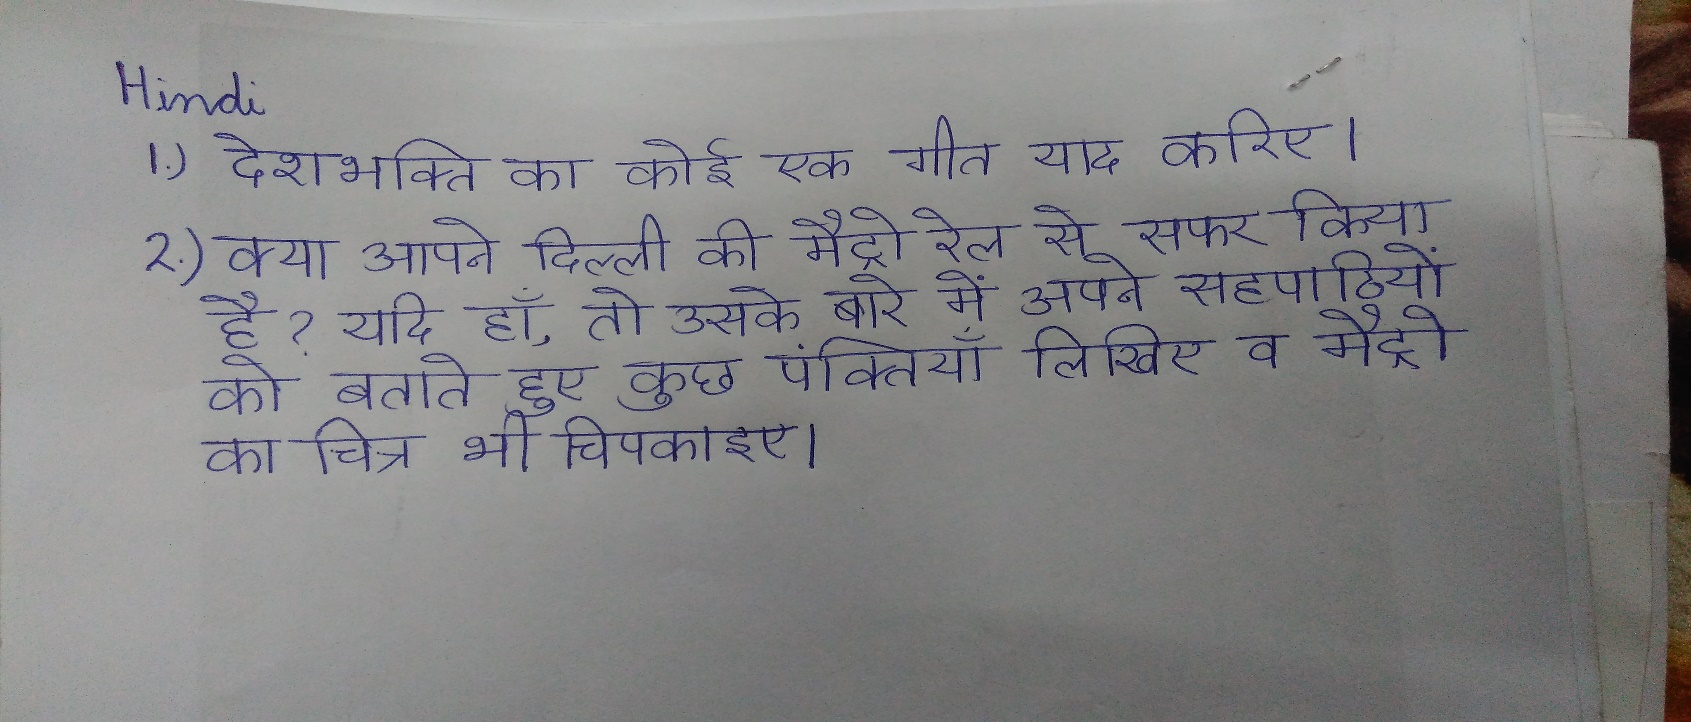 Hindi
1.) देशभक्ति का कोई एक गीत याद करिए।
2.) क्या आपने दिल्ली की मैट्रो रेल से सफर किया
है? यदि हाँ, तो उसके बारे में अपने सहपाठियों
को बताते हुए कुछ पंक्तियाँ लिखिए व मैट्रो
का चित्र भी चिपकाइए।